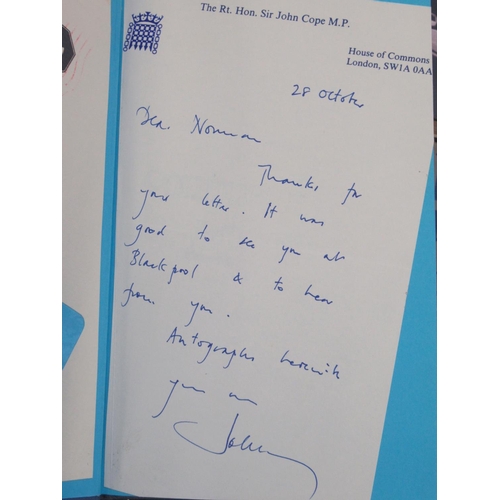 The Rt. Hon. Sir John Cope M.P.
House of Commons
London, SW1A 0AA
28 October
Dear Norman
Thanks for
your letter. It was
good to see you at
Blackpool & to hear
from you.
Autographs herewith
John